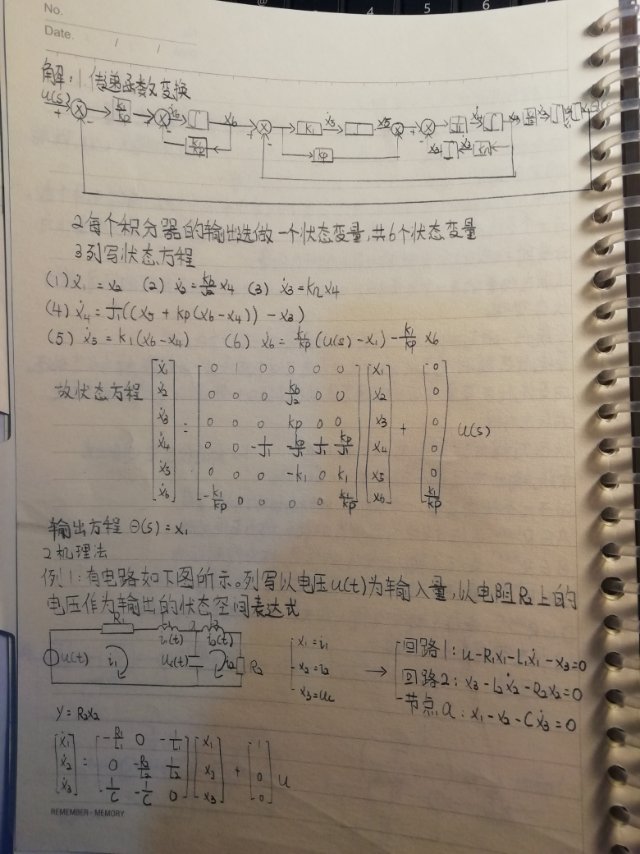 No.
Date.
4 5 6
解: 1 传递函数变换
u(s)
2 每个积分器的输出选做一个状态变量,共6个状态变量
3 列写状态方程
(1) ẋ₁ = x₂ (2) ẋ₂ = kb/J₂ x₄ (3) ẋ₃ = kn x₄
(4) ẋ₄ = 1/J₁((x₅ + kp(x₆-x₄)) - x₃)
(5) ẋ₅ = k₁(x₆-x₄) (6) ẋ₆ = k₁/kp(u(s)-x₁) - k₁/kp x₆
故状态方程 [ẋ₁ ẋ₂ ẋ₃ ẋ₄ ẋ₅ ẋ₆] =
0 1 0 0 0 0
0 0 0 kb/J₂ 0 0
0 0 0 kp 0 0
0 0 -1/J₁ -kp/J₁ 1/J₁ kp/J₁
0 0 0 -k₁ 0 k₁
-k₁/kp 0 0 0 0 k₁/kp
[x₁ x₂ x₃ x₄ x₅ x₆] + [0 0 0 0 0 k₁/kp] u(s)
输出方程 θ(s) = x₁
2 机理法
例1: 有电路如下图所示。列写以电压u(t)为输入量,以电阻R₂上的
电压作为输出的状态空间表达式
R₁ i₁(t) i₂(t)
u(t) i₁ Uc(t) i₂ R₂
x₁ = i₁
x₂ = i₂
x₃ = uc
→
回路1: u-R₁x₁-L₁ẋ₁-x₃=0
回路2: x₃-L₂ẋ₂-R₂x₂=0
节点a: x₁-x₂-Cẋ₃=0
y = R₂x₂
[ẋ₁ ẋ₂ ẋ₃] =
-R₁/L₁ 0 -1/L₁
0 -R₂/L₂ 1/L₂
1/C -1/C 0
[x₁ x₂ x₃] + [1 0 0] u
REMEMBER · MEMORY